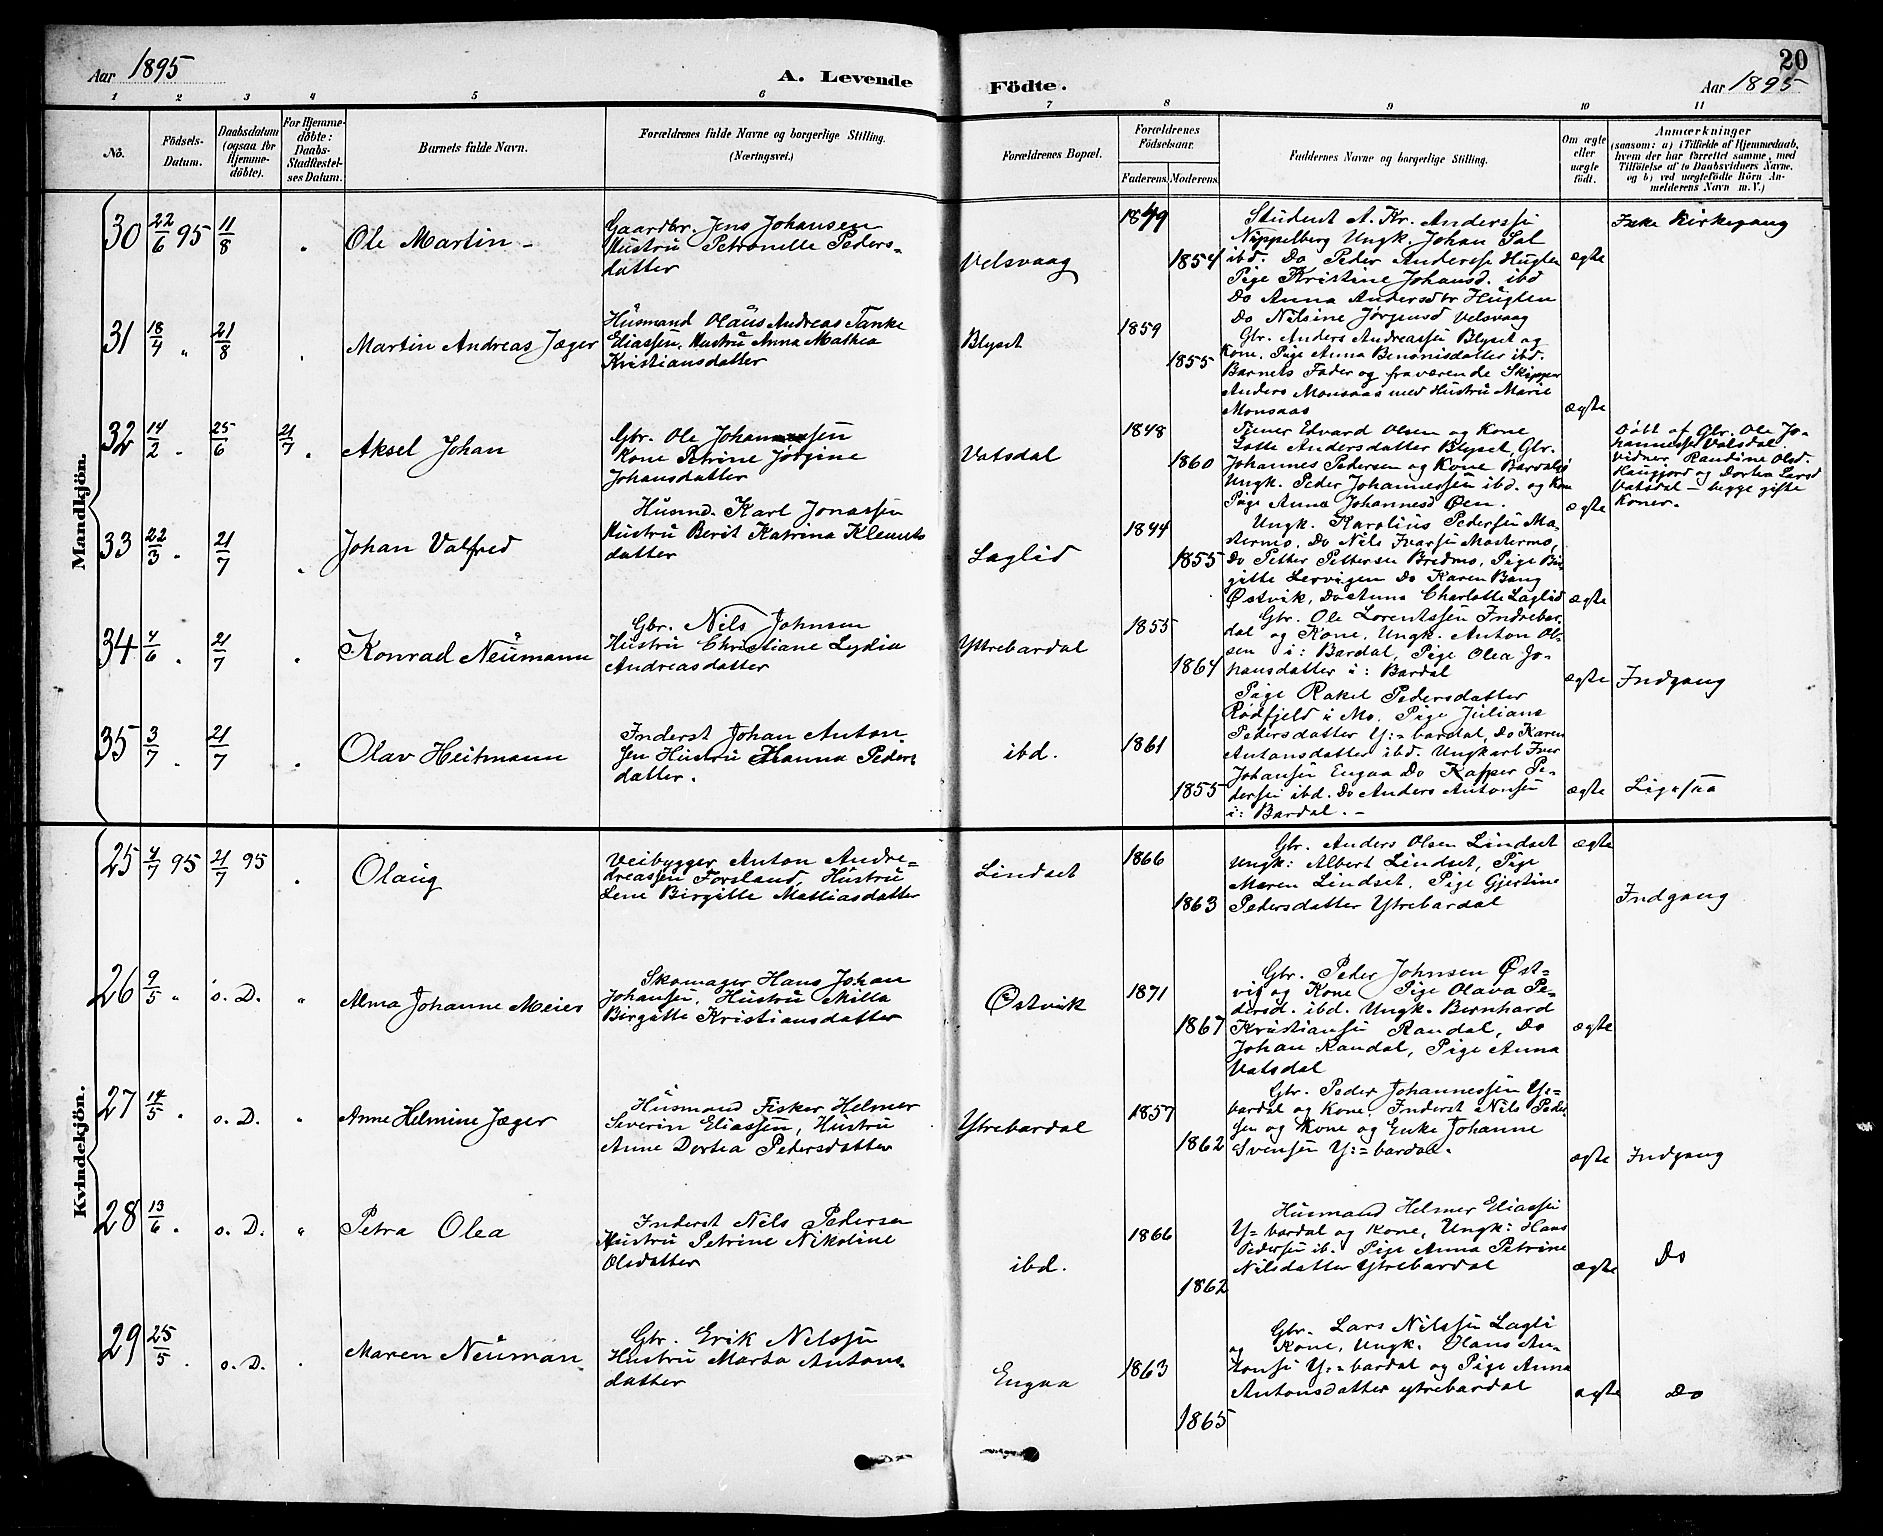 Aar 1895
A. Levende
Födte.
20
Aar 1895
1 2 3 4 5 6 7 8 9 10 11
No.
Födsels-
Datum.
Daabsdatum
(ogsaa for
Hjemme-
döbte).
For Hjemme-
döbte:
Daabs-
Stadfæstel-
ses Datum.
Barnets fulde Navn.
Forældrenes fulde Navne og borgerlige Stilling.
(Næringsvei.)
Forældrenes Bopæl.
Forældrenes
Födselsaar.
Faderens. Moderens.
Faddernes Navne og borgerlige Stilling.
Om ægte
eller
uægte
födt.
Anmærkninger
(saasom: a) i Tilfælde af Hjemmedaab,
hvem der har forrettet samme, med
Tilföielse af to Daabsvidners Navne.
og b) ved uægtefödte Börn An-
melderens Navn m. V.)
Mandkjön.
30 22/6 95 11/8 "
Ole Martin
Gaardbr. Jens Johansen
Hustru Petronelle Peders-
datter
Velsvaag
1849
1854
Student A. Kr. Anderssen
Nippelberg Ungk. Johan Sal
ibd. Do Peder Anderss Huglen
Pige Kristine Johansd. ibd
Do Anna Andersdtr Huglen
Do Nilsine Jørgensd Velsvaag
ægte
Ikke Kirkegang
31 18/4 " 21/8
Martin Andreas Jæger
Husmand Olaus Andreas Tanke
Eliassen, Hustru Anna Mathea
Kristiansdatter
Blyset
1859
1855
Gbr. Anders Andreassen Blyset og
Kone, Pige Anna Benonisdatter ibd.
Barnets Fader og fraværende Skipper
Anders Monsaas med Hustru Marie
Monsaas
ægte
32 14/2 " 25/6 21/7 "
Aksel Johan
Gbr. Ole Johannessen
Kone Petrine Jørgine
Johansdatter
Vatsdal
1848
1860
Tjener Edvard Olsen og Kone
Lotte Andersdatter Blyset, Gbr.
Johannes Pedersen og Kone Bardalsj
Ungk. Peder Johannessen ibd. og Kone
Pige Anna Johannesd Øen.
ægte
Døbt af Gbr. Ole Jo-
hannessen Vatsdal.
Vidner Randine Olsd.
Haugjord og Dortea Larsd
Vatsdal – begge gifte
Koner.
33 22/3 " 21/7 "
Johan Valfred
Husmd. Karl Jonassen
Hustru Berit Katrina Klemets
datter
Laglid
1844
1855
Ungk. Karolius Pedersen Ma-
stermo, Do Nils Ivarsen Mastermo,
Do Petter Pettersen Bredmo, Pige Bir-
gitte Lervigen Do Karen Bang
Østvik, Do Anna Charlotte Laglid
ægte
34 4/6 " 21/7 "
Konrad Neumann
Gbr. Nils Johnsen
Hustru Christiane Lydia
Andreasdatter
Ytrebardal
1855
1864
Gbr. Ole Lorentssen Indrebar-
dal og Kone, Ungk. Anton Ol-
sen i: Bardal, Pige Olea Jo-
hansdatter i: Bardal
ægte
Indgang
35 3/7 " 21/7 "
Olav Heitmann
Inderst Johan Anton-
sen Hustru Hanna Peders
datter.
ibd.
1861
1855
Pige Rakel Pedersdatter
Rødfjeld i Mo. Pige Juliane
Pedersdatter Y:=bardal, Do Karen
Antonsdatter ibd. Ungkarl Iver
Johansen Engaa Do Kasper Pe-
dersen ibd. Do Anders Antonsen
i: Bardal. –
ægte
Ligesaa
Kvindekjön.
25 4/7 95 21/7 95 "
Olaug
Veibygger Anton Andre-
dreassen Forsland, Hustru
Lene Birgitte Mattiasdatter
Lindset
1866
1863
Gbr. Anders Olsen Lindset
Ungk: Albert Lindset, Pige
Maren Lindset, Pige Gjertine
Pedersdatter Ytrebardal
ægte
Indgang
26 9/5 " s. D. "
Alma Johanne Meier
Skomager Hans Johan
Johansen, Hustru Milla
Birgitte Kristiansdatter
Østvik
1871
1867
Gbr. Peder Johnsen Øst-
vig og Kone Pige Olava Pe-
dersd. ibd. Ungk. Bernhard
Kristiansen Randal, Do
Johan Randal, Pige Anna
Vatsdal
ægte
27 14/5 " s. D. "
Anne Helmine Jæger
Husmand Fisker Helmer
Severin Eliassen, Hustru
Anne Dortea Pedersdatter
Ytrebardal
1857
1862
Gbr. Peder Johannessen Y:=
bardal og Kone, Inderst Nils Peder
sen og Kone og Enke Johanne
Svensen Y:=bardal.
ægte
Indgang
28 13/6 " s. D. "
Petra Olea
Inderst Nils Pedersen
Hustru Petrine Nikoline
Olsdatter
ibd.
1866
1862
Husmand Helmer Eliassen
Y=bardal og Kone, Ungk: Hans
Pedersen ib. Pige Anna Petrine
Nilsdatter Ytrebardal
ægte
Do
29 25/5 " s. D. "
Maren Neuman
Gbr. Erik Nilssen
Hustru Marta Antons-
datter
Engaa
1863
1865
Gbr. Lars Nilssen Lagli
og Kone, Ungk. Hans An-
tonsen Y:=bardal og Pige Anna
Antonsdatter ytrebardal
ægte
Do